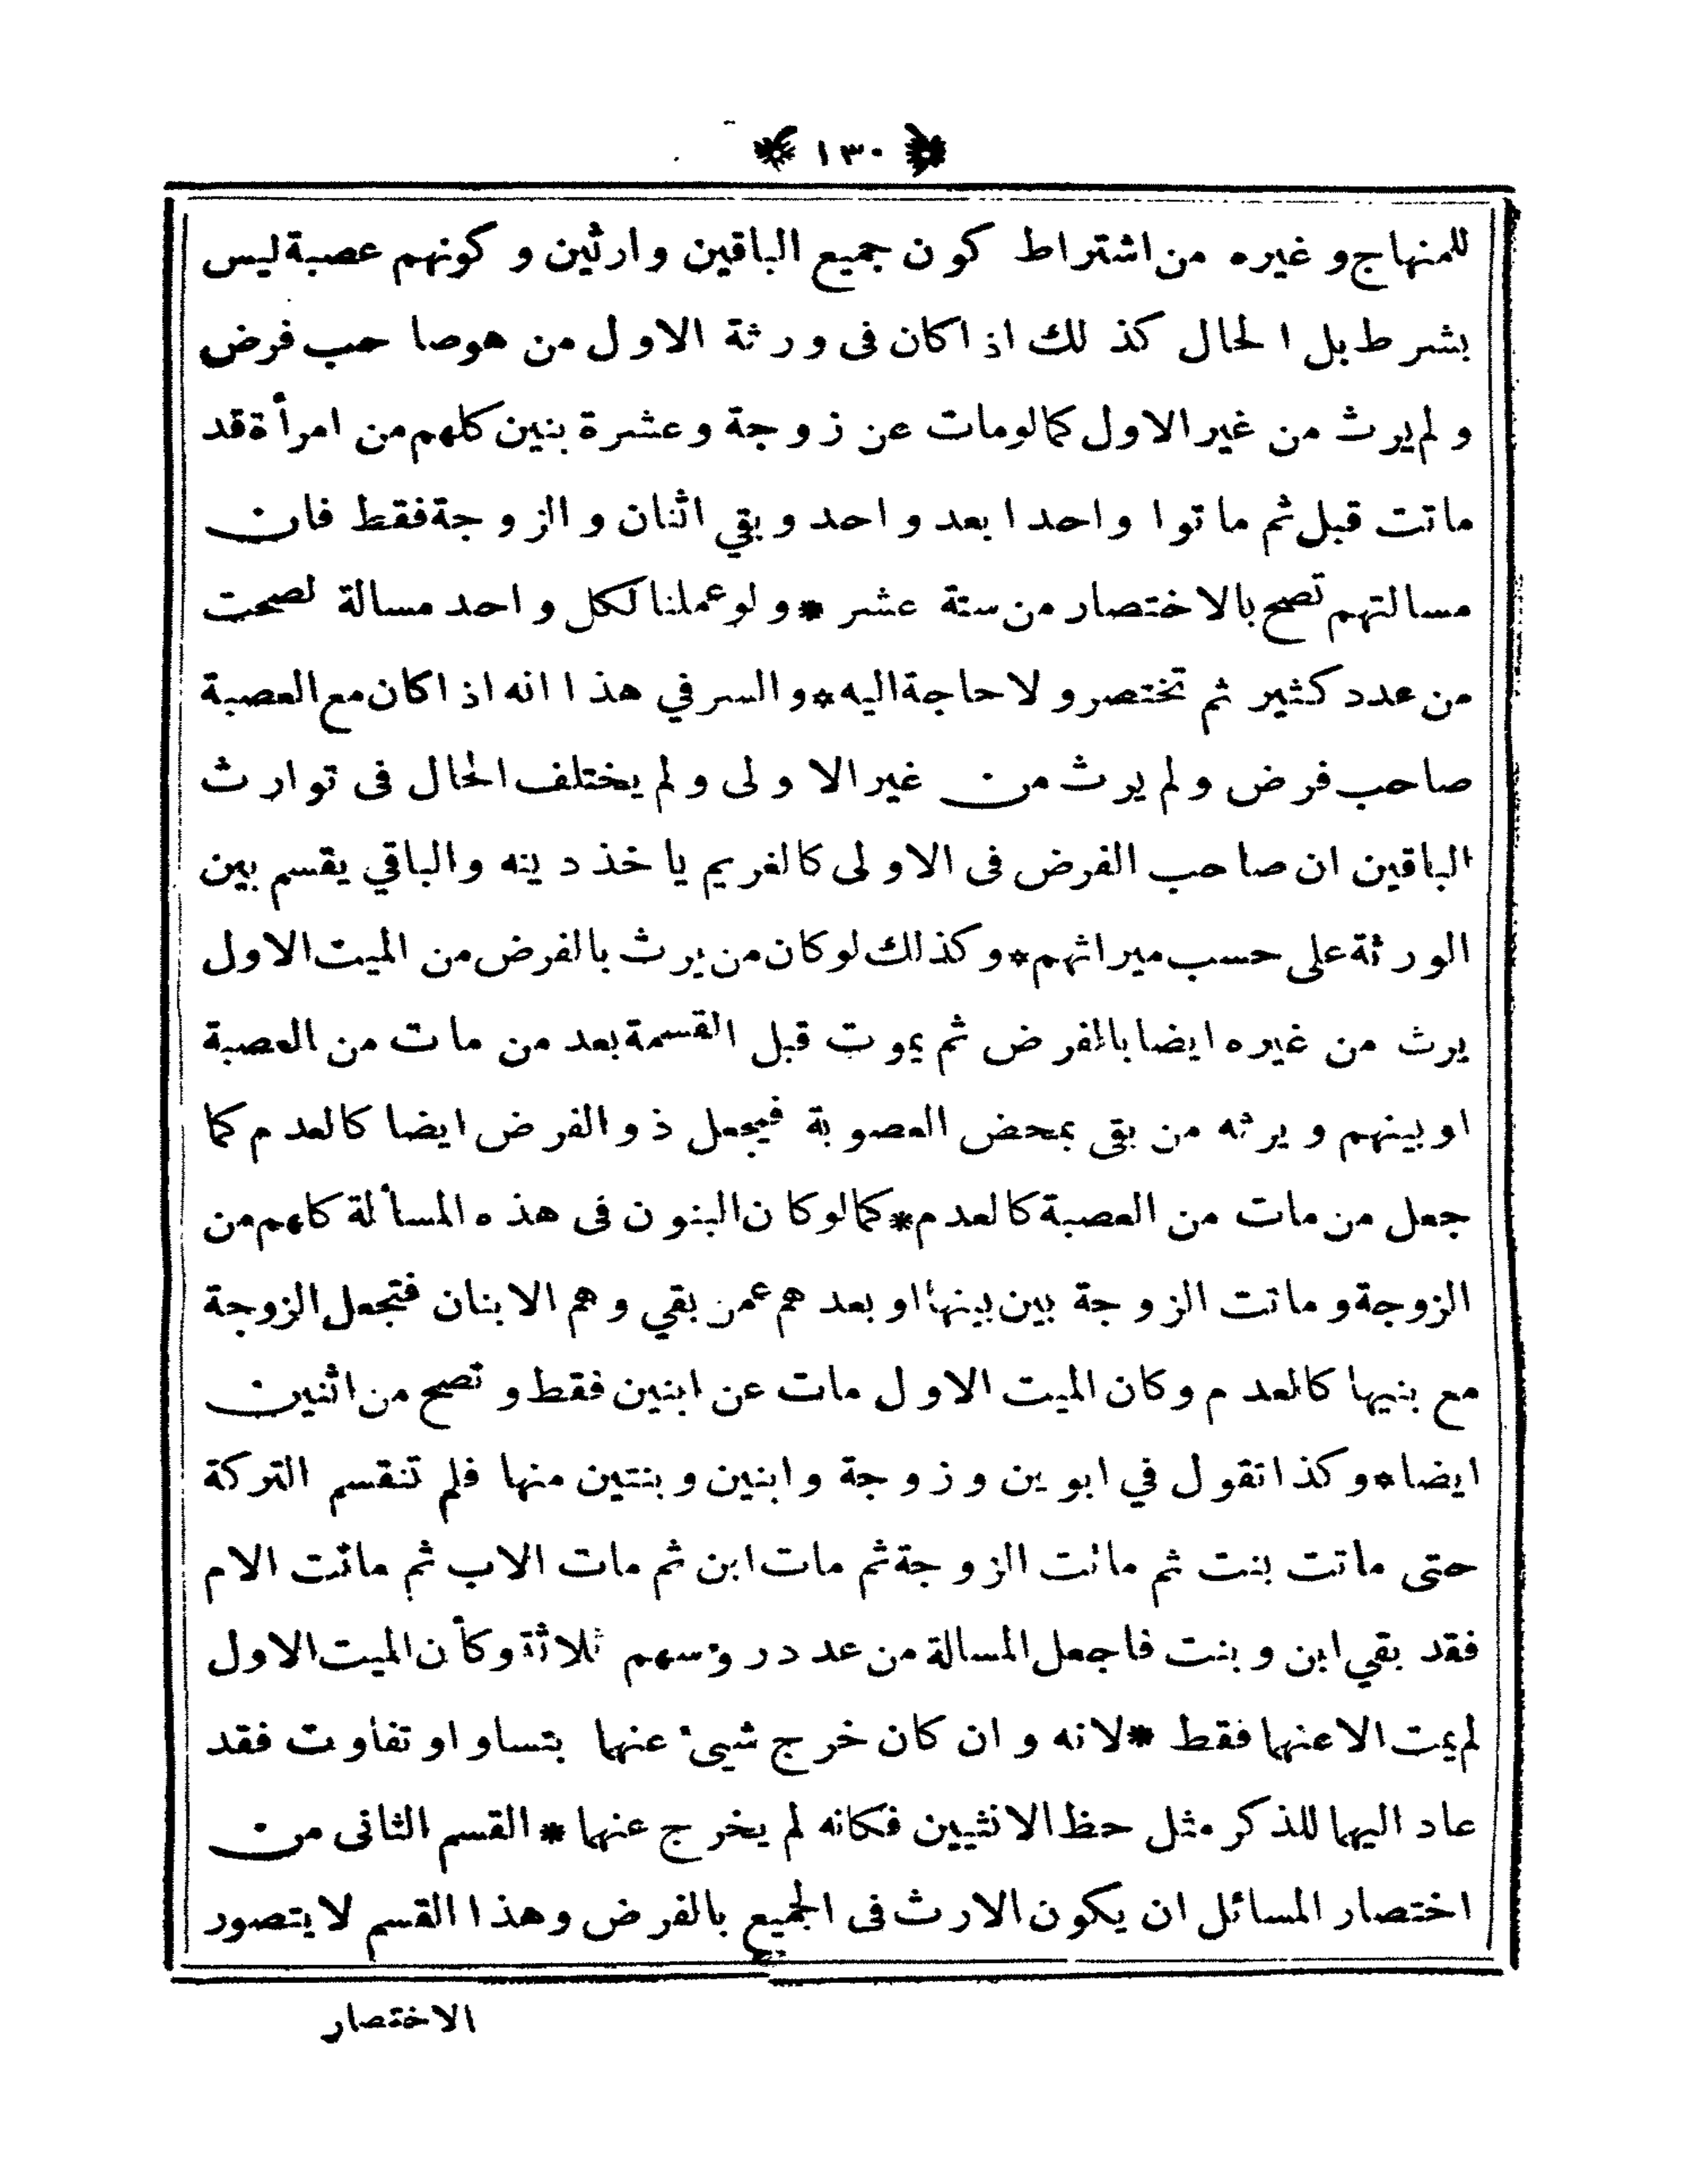 ١٣٠
للمنهاج و غيره من اشتراط كون جميع الباقين وارثين و كونهم عصبة ليس
بشرط بل الحال كذلك اذا كان فى ورثة الاول من هو صاحب فرض
و لم يرث من غير الاول كما لو مات عن زوجة وعشرة بنين كلهم من امرأة قد
ماتت قبل ثم ماتوا واحدا بعد واحد و بقي اثنان و الزوجة فقط فان
مسالتهم تصح بالاختصار من ستة عشر * و لو عملنا لكل واحد مسالة لصحت
من عدد كثير ثم تختصر و لا حاجة اليه * و السر في هذا انه اذا كان مع العصبة
صاحب فرض و لم يرث من غير الاولى و لم يختلف الحال فى توارث
الباقين ان صاحب الفرض فى الاولى كالغريم ياخذ دينه والباقي يقسم بين
الورثة على حسب ميراثهم * و كذلك لو كان من يرث بالفرض من الميت الاول
يرث من غيره ايضا بالفرض ثم يموت قبل القسمة بعد من مات من العصبة
او بينهم و يرثه من بقى بمحض العصوبة فيجعل ذو الفرض ايضا كالعدم كما
جعل من مات من العصبة كالعدم * كما لو كان البنون فى هذه المسألة كلهم من
الزوجة و ماتت الزوجة بين بينها او بعدهم عمن بقي و هم الابنان فتجعل الزوجة
مع بنيها كالعدم و كان الميت الاول مات عن ابنين فقط و تصح من اثنين
ايضا * و كذا نقول في ابوين و زوجة و ابنين و بنتين منها فلم تنقسم التركة
حتى ماتت بنت ثم ماتت الزوجة ثم مات ابن ثم مات الاب ثم ماتت الام
فقد بقي ابن و بنت فاجعل المسالة من عدد رؤسهم ثلاثة وكأن الميت الاول
لم يمت الا عنهما فقط * لانه و ان كان خرج شيئ عنهما بتساو او تفاوت فقد
عاد اليهما للذكر مثل حظ الانثيين فكانه لم يخرج عنهما * القسم الثانى من
اختصار المسائل ان يكون الارث فى الجميع بالفرض و هذا القسم لا يتصور
الاختصار